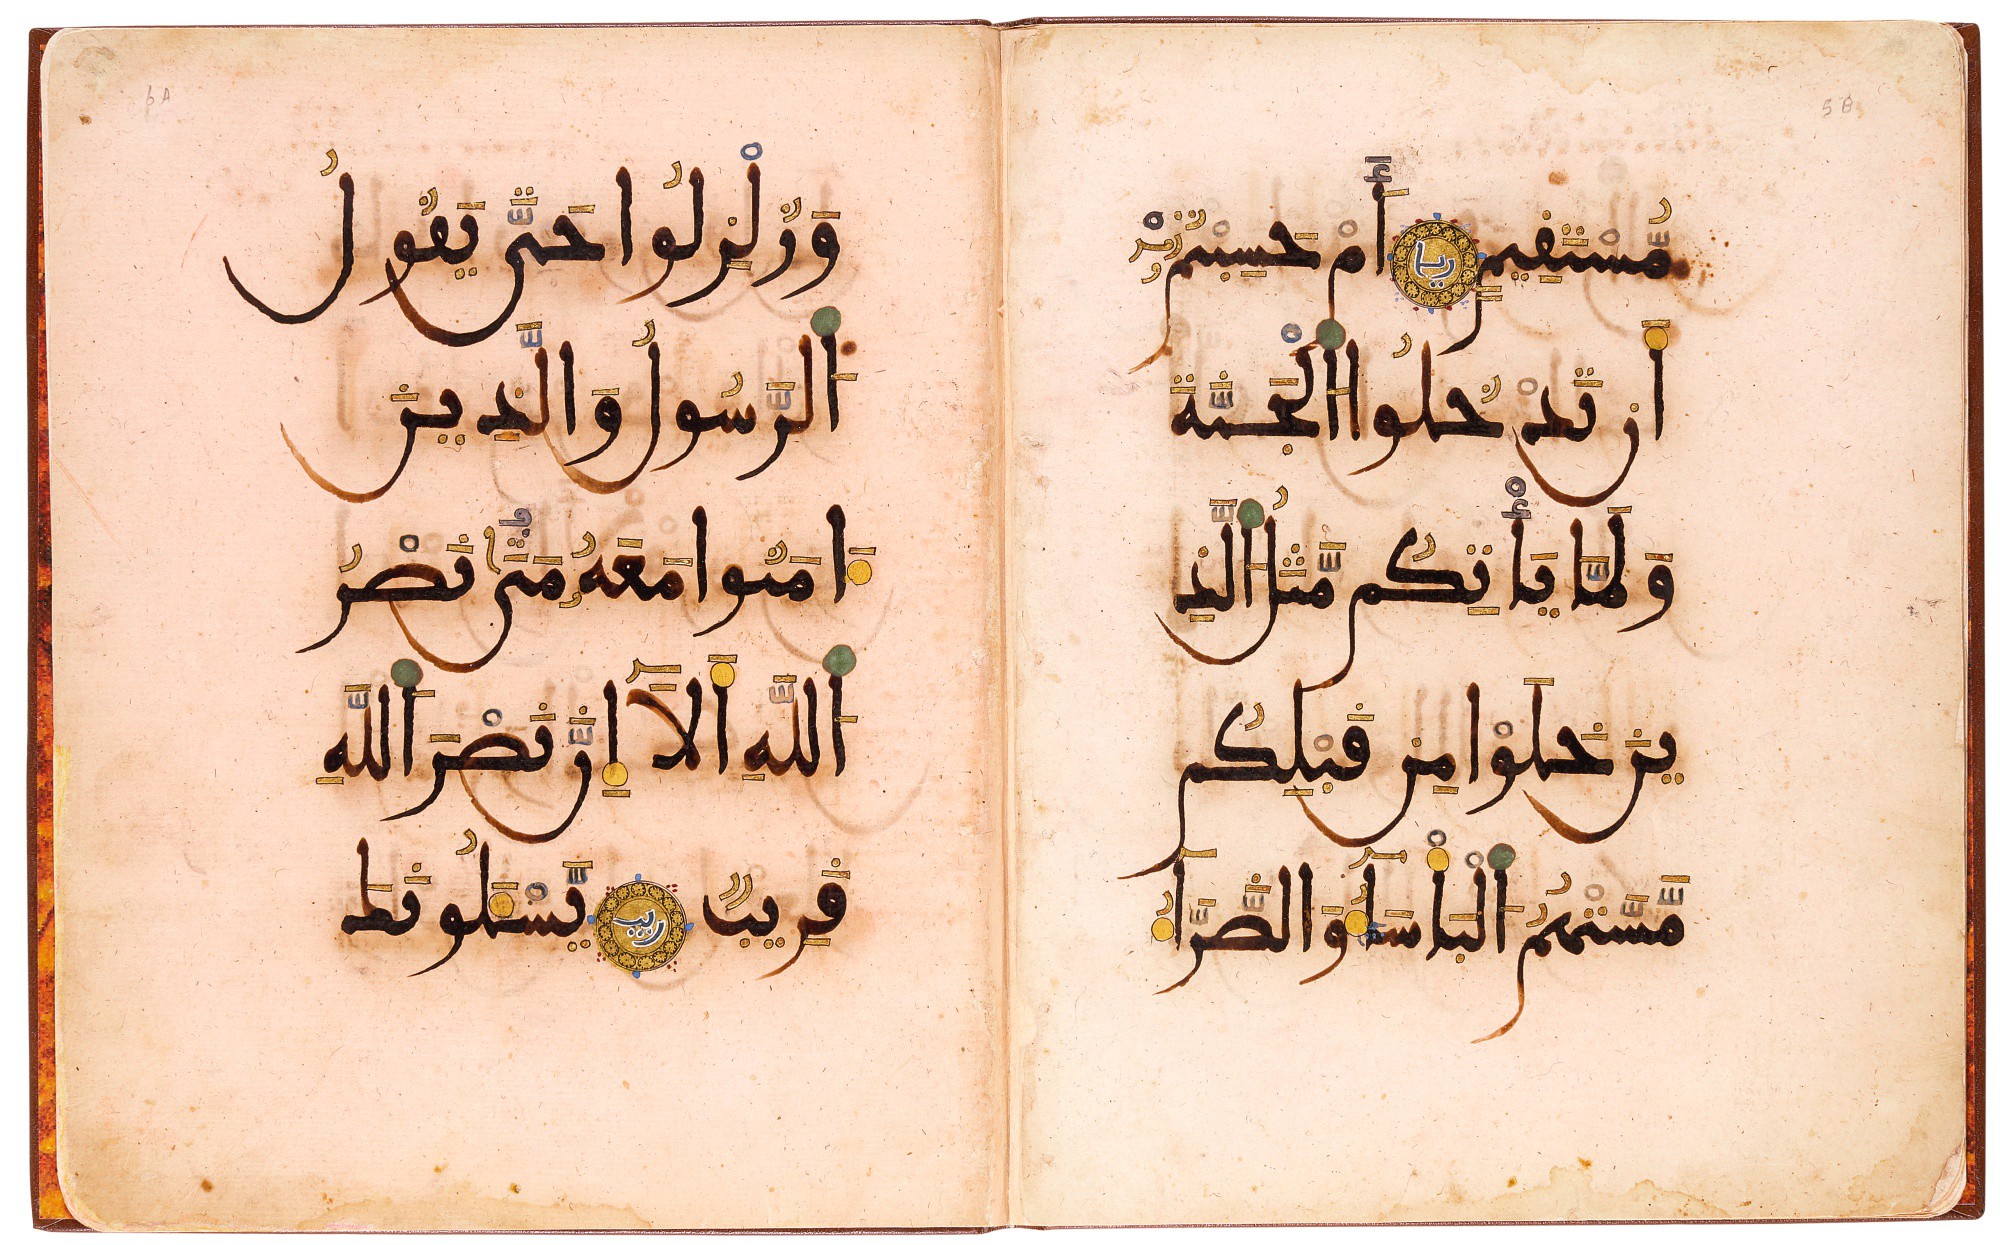 5B
مُّسْتَقِيمٍ ريا أَمْ حَسِبْتُمْ
أَن تَدْخُلُوا الْجَنَّةَ
وَلَمَّا يَأْتِكُم مَّثَلُ الَّذِ
ينَ خَلَوْا مِن قَبْلِكُم
مَّسَّتْهُمُ الْبَأْسَآءُ وَالضَّرَّآءُ
6A
وَزُلْزِلُوا حَتَّى يَقُولُ
الرَّسُولُ وَالَّذِينَ
ءَامَنُوا مَعَهُ مَتَى نَصْرُ
اللَّهِ أَلَآ إِنَّ نَصْرَ اللَّهِ
قَرِيبٌ ريب يَسْـَٔلُونَكَ